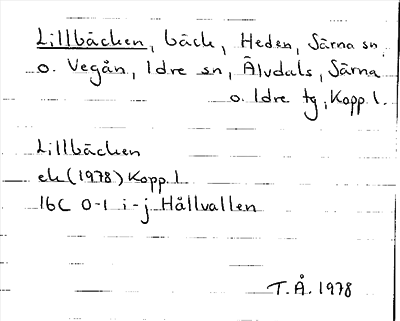 Lillbäcken, bäck, Heden, Särna sn,
o. Vegån, Idre sn, Älvdals, Särna
o. Idre tg, Kopp. l.
Lillbäcken
ek (1978) Kopp. l
16C 0-1 i-j Hållvallen
T.Å. 1978